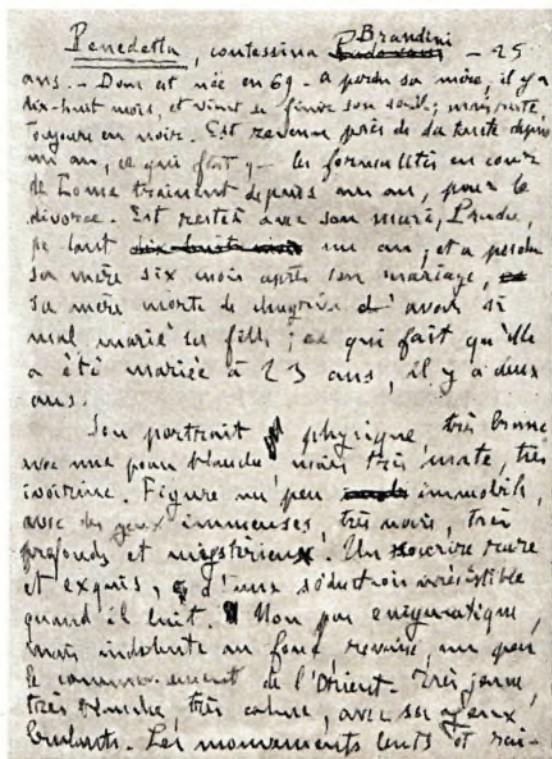 Brandini
Benedetta, contessina – 25
ans. – Donc est née en 69. a perdu sa mère, il y a
dix-huit mois, et vient de finir son deuil; mais reste
toujours en noir. Est revenue près de sa tante depuis
un an, ce qui fait que les formalités en cour
de Rome traînent depuis un an, pour le
divorce. Est restée avec son mari, Prada,
pendant dix-huit mois un an, et a perdu
sa mère six mois après son mariage,
sa mère morte de chagrin d'avoir si
mal marié sa fille; ce qui fait qu'elle
a été mariée à 23 ans, il y a deux
ans.
Son portrait physique, très brune
avec une peau blanche mais très mate, très
ivoirine. Figure un peu immobile,
avec des yeux immenses, très noirs, très
profonds et mystérieux. Un sourire rare
et exquis, d'une séduction irrésistible
quand il luit. Non pas énigmatique,
mais indolente au fond, rêveuse, un peu
le commencement de l'Orient. Très jeune,
très blanche, très calme, avec ses yeux
brulants. Les mouvements lents et